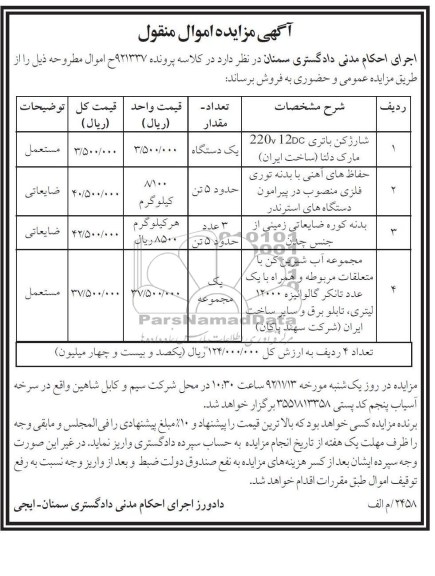 آگهی مزایده اموال منقول
اجرای احکام مدنی دادگستری سمنان در نظر دارد در کلاسه پرونده ۹۲۱۳۳۷ح اموال مطروحه ذیل را از
طریق مزایده عمومی و حضوری به فروش برساند:
ردیف شرح مشخصات تعداد- مقدار قیمت واحد (ریال) قیمت کل (ریال) توضیحات
۱ شارژکن باتری 220v 12DC مارک دلتا (ساخت ایران) یک دستگاه ۳/۵۰۰/۰۰۰ ۳/۵۰۰/۰۰۰ مستعمل
۲ حفاظ های آهنی با بدنه توری فلزی منصوب در پیرامون دستگاه های استرندر حدود ۵ تن ۸/۱۰۰ کیلوگرم ۴۰/۵۰۰/۰۰۰ ضایعاتی
۳ بدنه کوره ضایعاتی زمینی از جنس چدن ۳ عدد حدود ۵ تن هر کیلوگرم ۸۵۰۰ ریال ۴۲/۵۰۰/۰۰۰ ضایعاتی
۴ مجموعه آب شیرین کن با متعلقات مربوطه و همراه با یک عدد تانکر گالوانیزه ۱۲۰۰۰ لیتری، تابلو برق و سایر ساخت ایران (شرکت سهند پاکان) یک مجموعه ۳۷/۵۰۰/۰۰۰ ۳۷/۵۰۰/۰۰۰ مستعمل
تعداد ۴ ردیف به ارزش کل ۱۲۴/۰۰۰/۰۰۰ ریال (یکصد و بیست و چهار میلیون)
ParsNamadData
مزایده در روز یک شنبه مورخه ۹۲/۱۱/۱۳ ساعت ۱۰:۳۰ در محل شرکت سیم و کابل شاهین واقع در سرخه
آسیاب پنجم کد پستی ۳۵۵۱۸۱۳۳۵۸ برگزار خواهد شد.
برنده مزایده کسی خواهد بود که بالاترین قیمت را پیشنهاد و ۱۰٪ مبلغ پیشنهادی را فی المجلس و مابقی وجه
را ظرف مهلت یک هفته از تاریخ انجام مزایده به حساب سپرده دادگستری واریز نماید. در غیر این صورت
وجه سپرده ایشان بعد از کسر هزینه های مزایده به نفع صندوق دولت ضبط و بعد از واریز وجه نسبت به رفع
توقیف اموال طبق مقررات اقدام خواهد شد.
۲۴۵۸/م الف
دادورز اجرای احکام مدنی دادگستری سمنان-ایجی